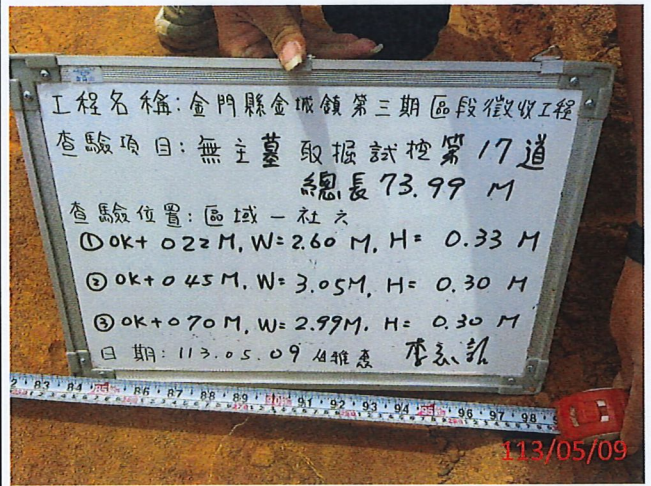 工程名稱:金門縣金城鎮第三期區段徵收工程
查驗項目:無主墓 取掘試挖第17道
總長73.99 M
查驗位置:區域一社六
①0K+022M, W=2.60 M, H= 0.33 M
②0K+045M, W=3.05M, H= 0.30 M
③0K+070M, W=2.99M, H= 0.30 M
日期:113.05.09
82 83 84 85 86 87 88 89 90 91 92 93 94 95 96 97 98
113/05/09